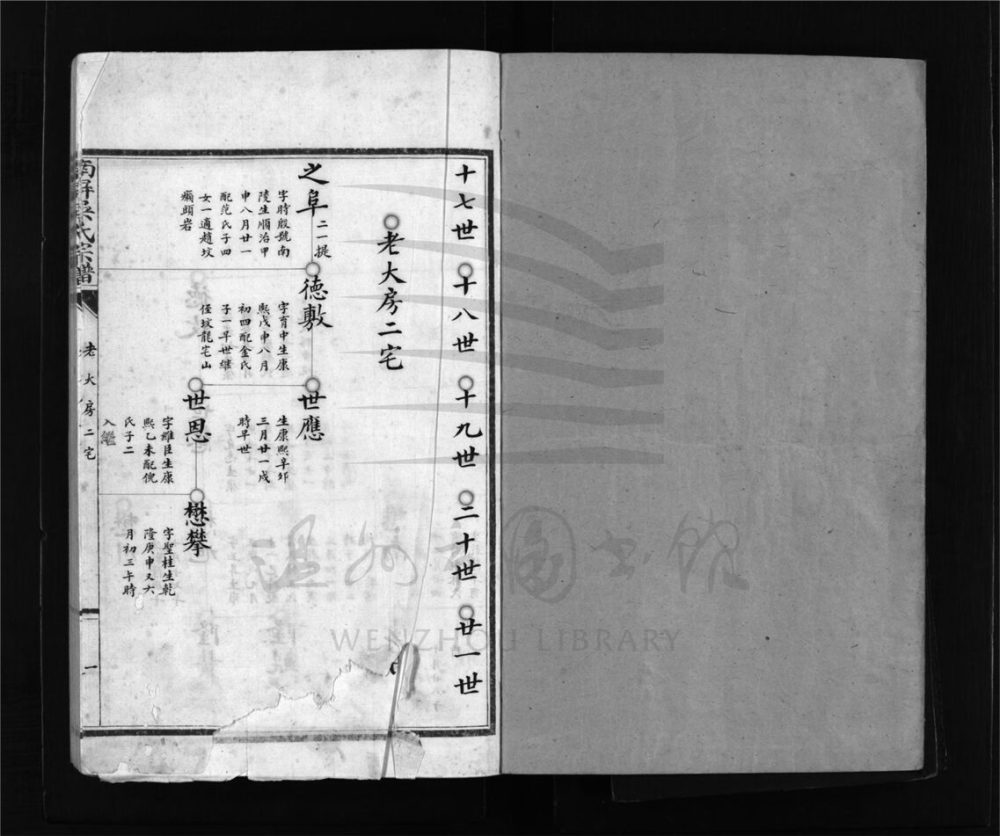 十七世 十八世 十九世 二十世 廿一世
老大房二宅
之阜
二一提
字時殷號南
陵生順治甲
申八月廿一
配范氏子四
女一適趙坟
癩頭岩
德敷
字育中生康
熙戊申八月
初四配金氏
子一早世継
侄坟龍宅山
世應
生康熙辛卯
三月廿一戌
時早世
世恩
字維臣生康
熙乙未配倪
氏子二
入繼
懋攀
字聖桂生乾
隆庚申又六
月初三午時
南屏吳氏宗譜
老大房二宅
一
溫州市圖書館
WENZHOU LIBRARY